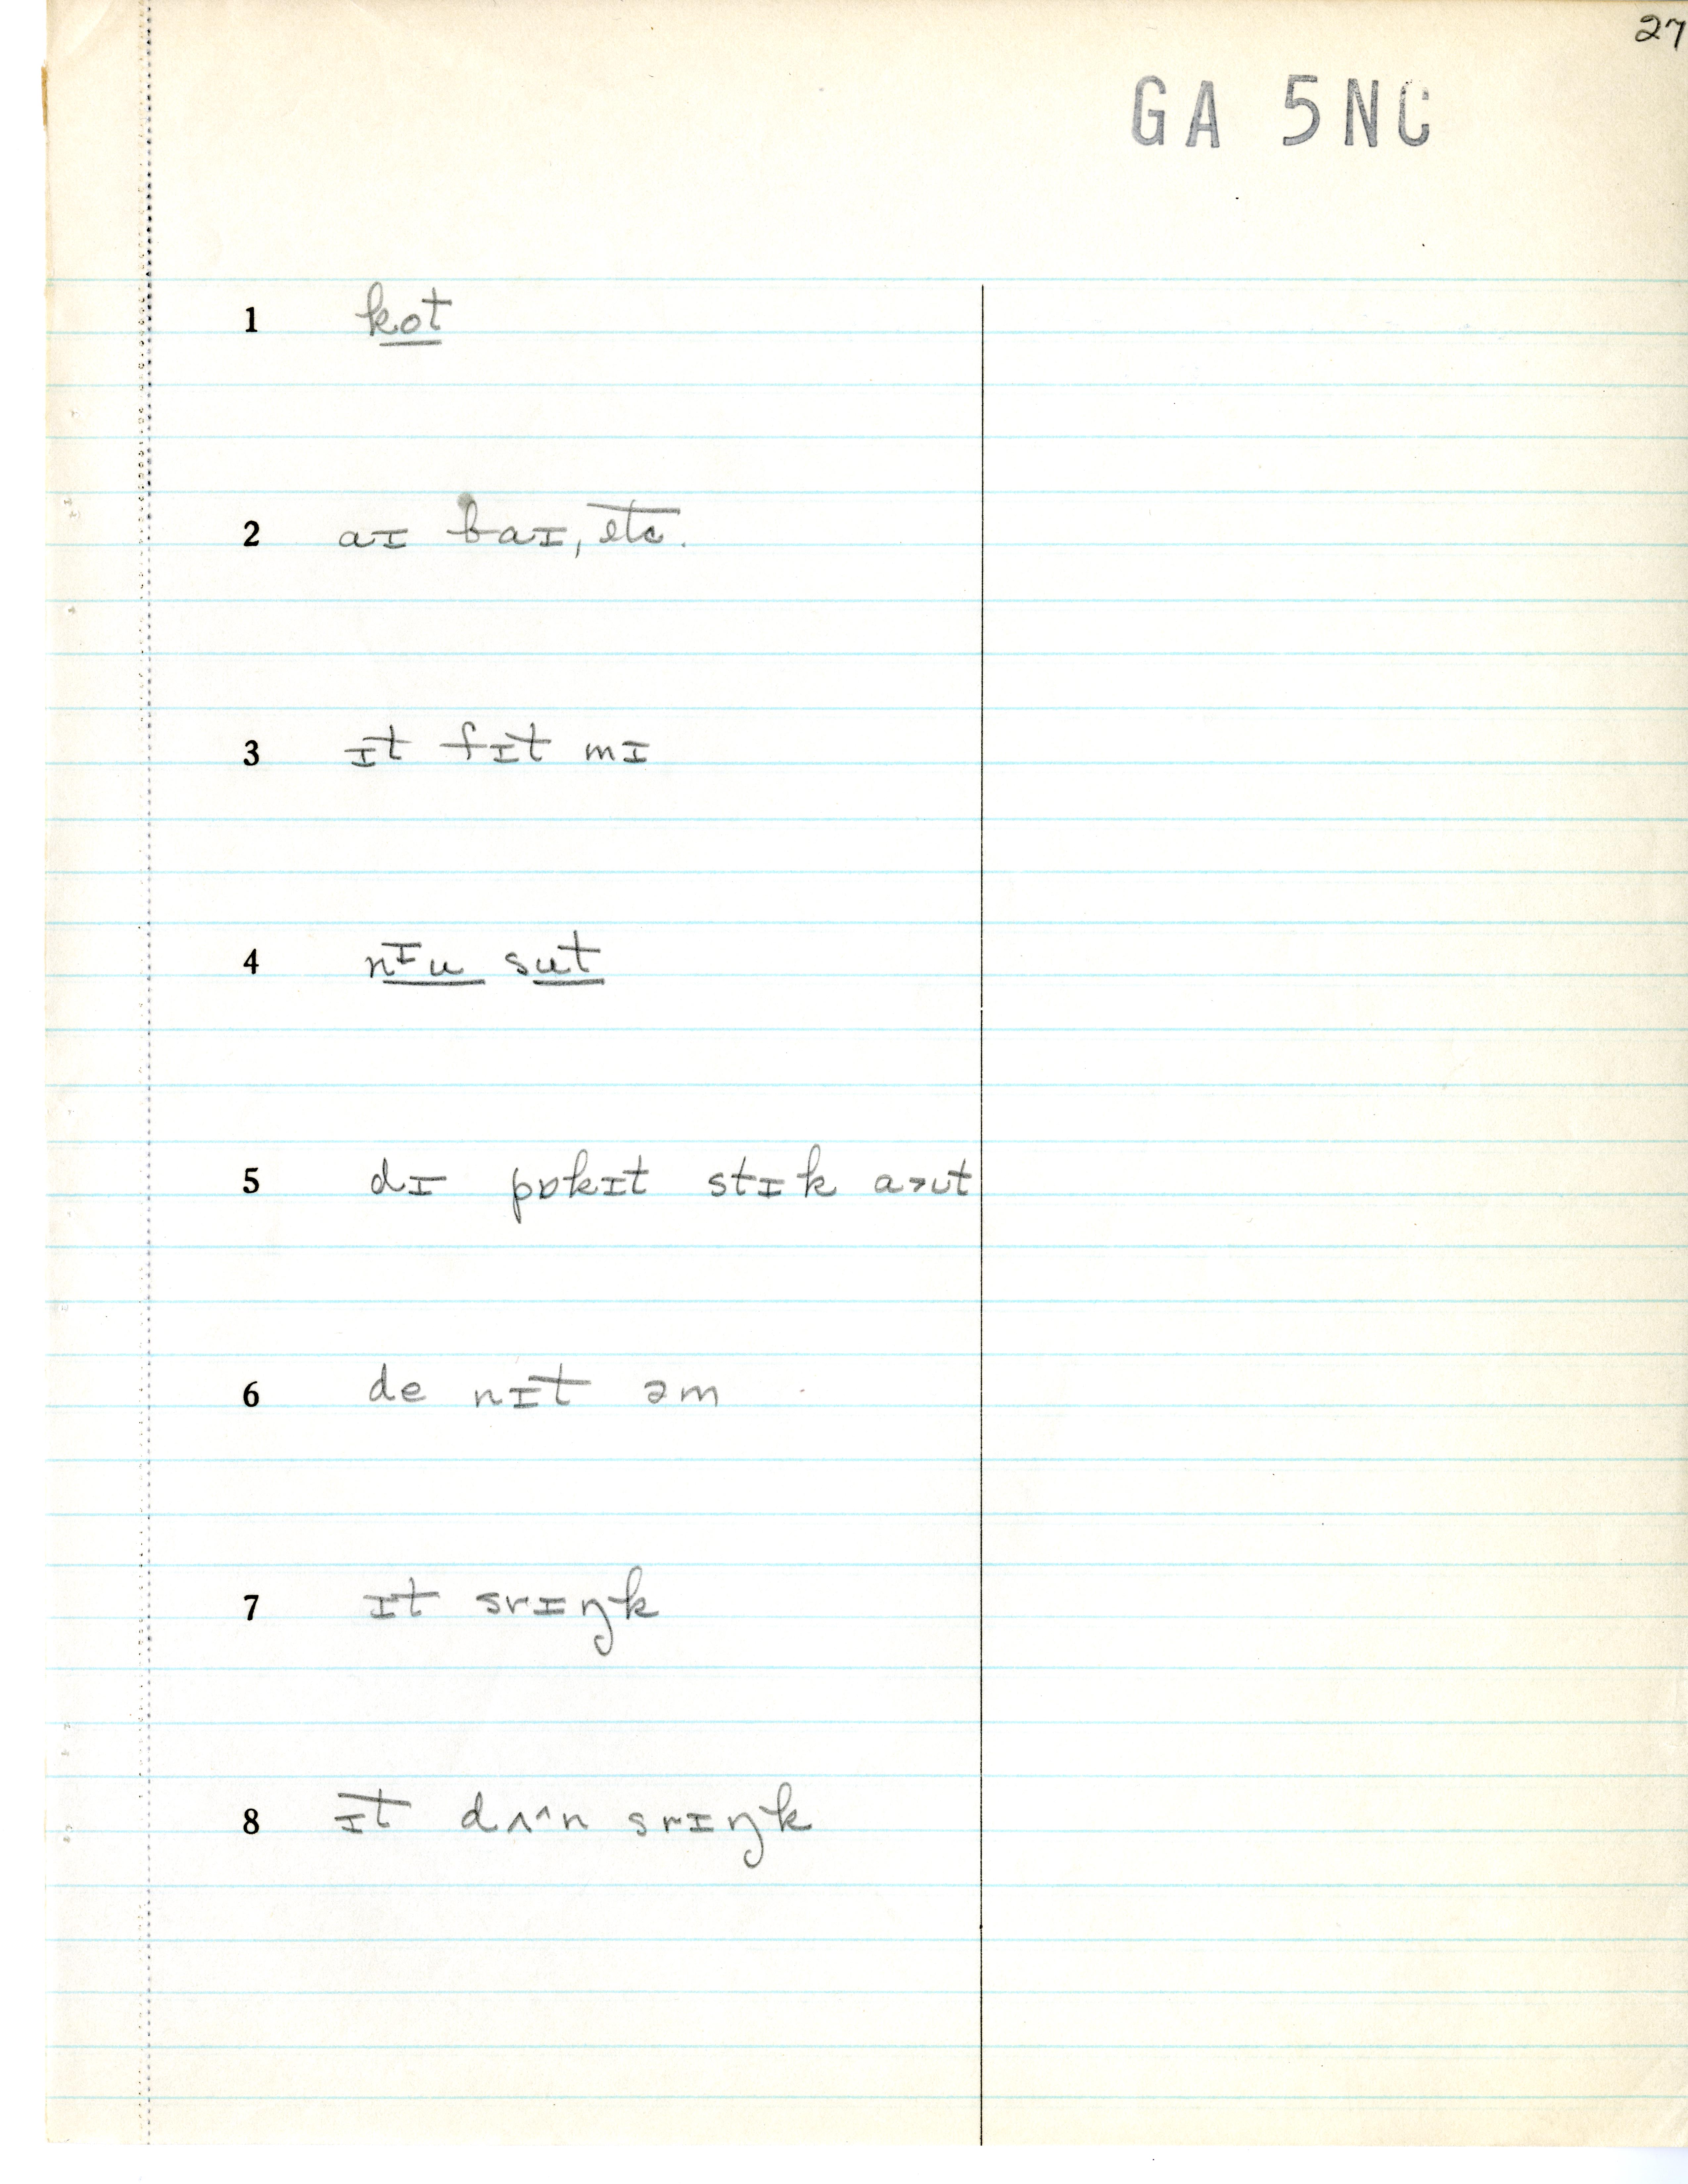 27
GA 5NC
1 kot
2 aɪ baɪ, etc.
3 ɪt fɪt mɪ
4 nᶦu sut
5 dɪ pɒkɪt stɪk a˃ʊt
6 de nɪt əm
7 ɪt srɪŋk
8 ɪt dʌ^n srɪŋk